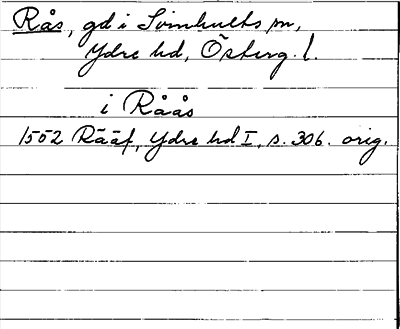 Rås, gd i Svinhults sn,
Ydre hd, Österg. l.
i Råås
1502 Rääf, Ydre hd I, s. 306. orig.